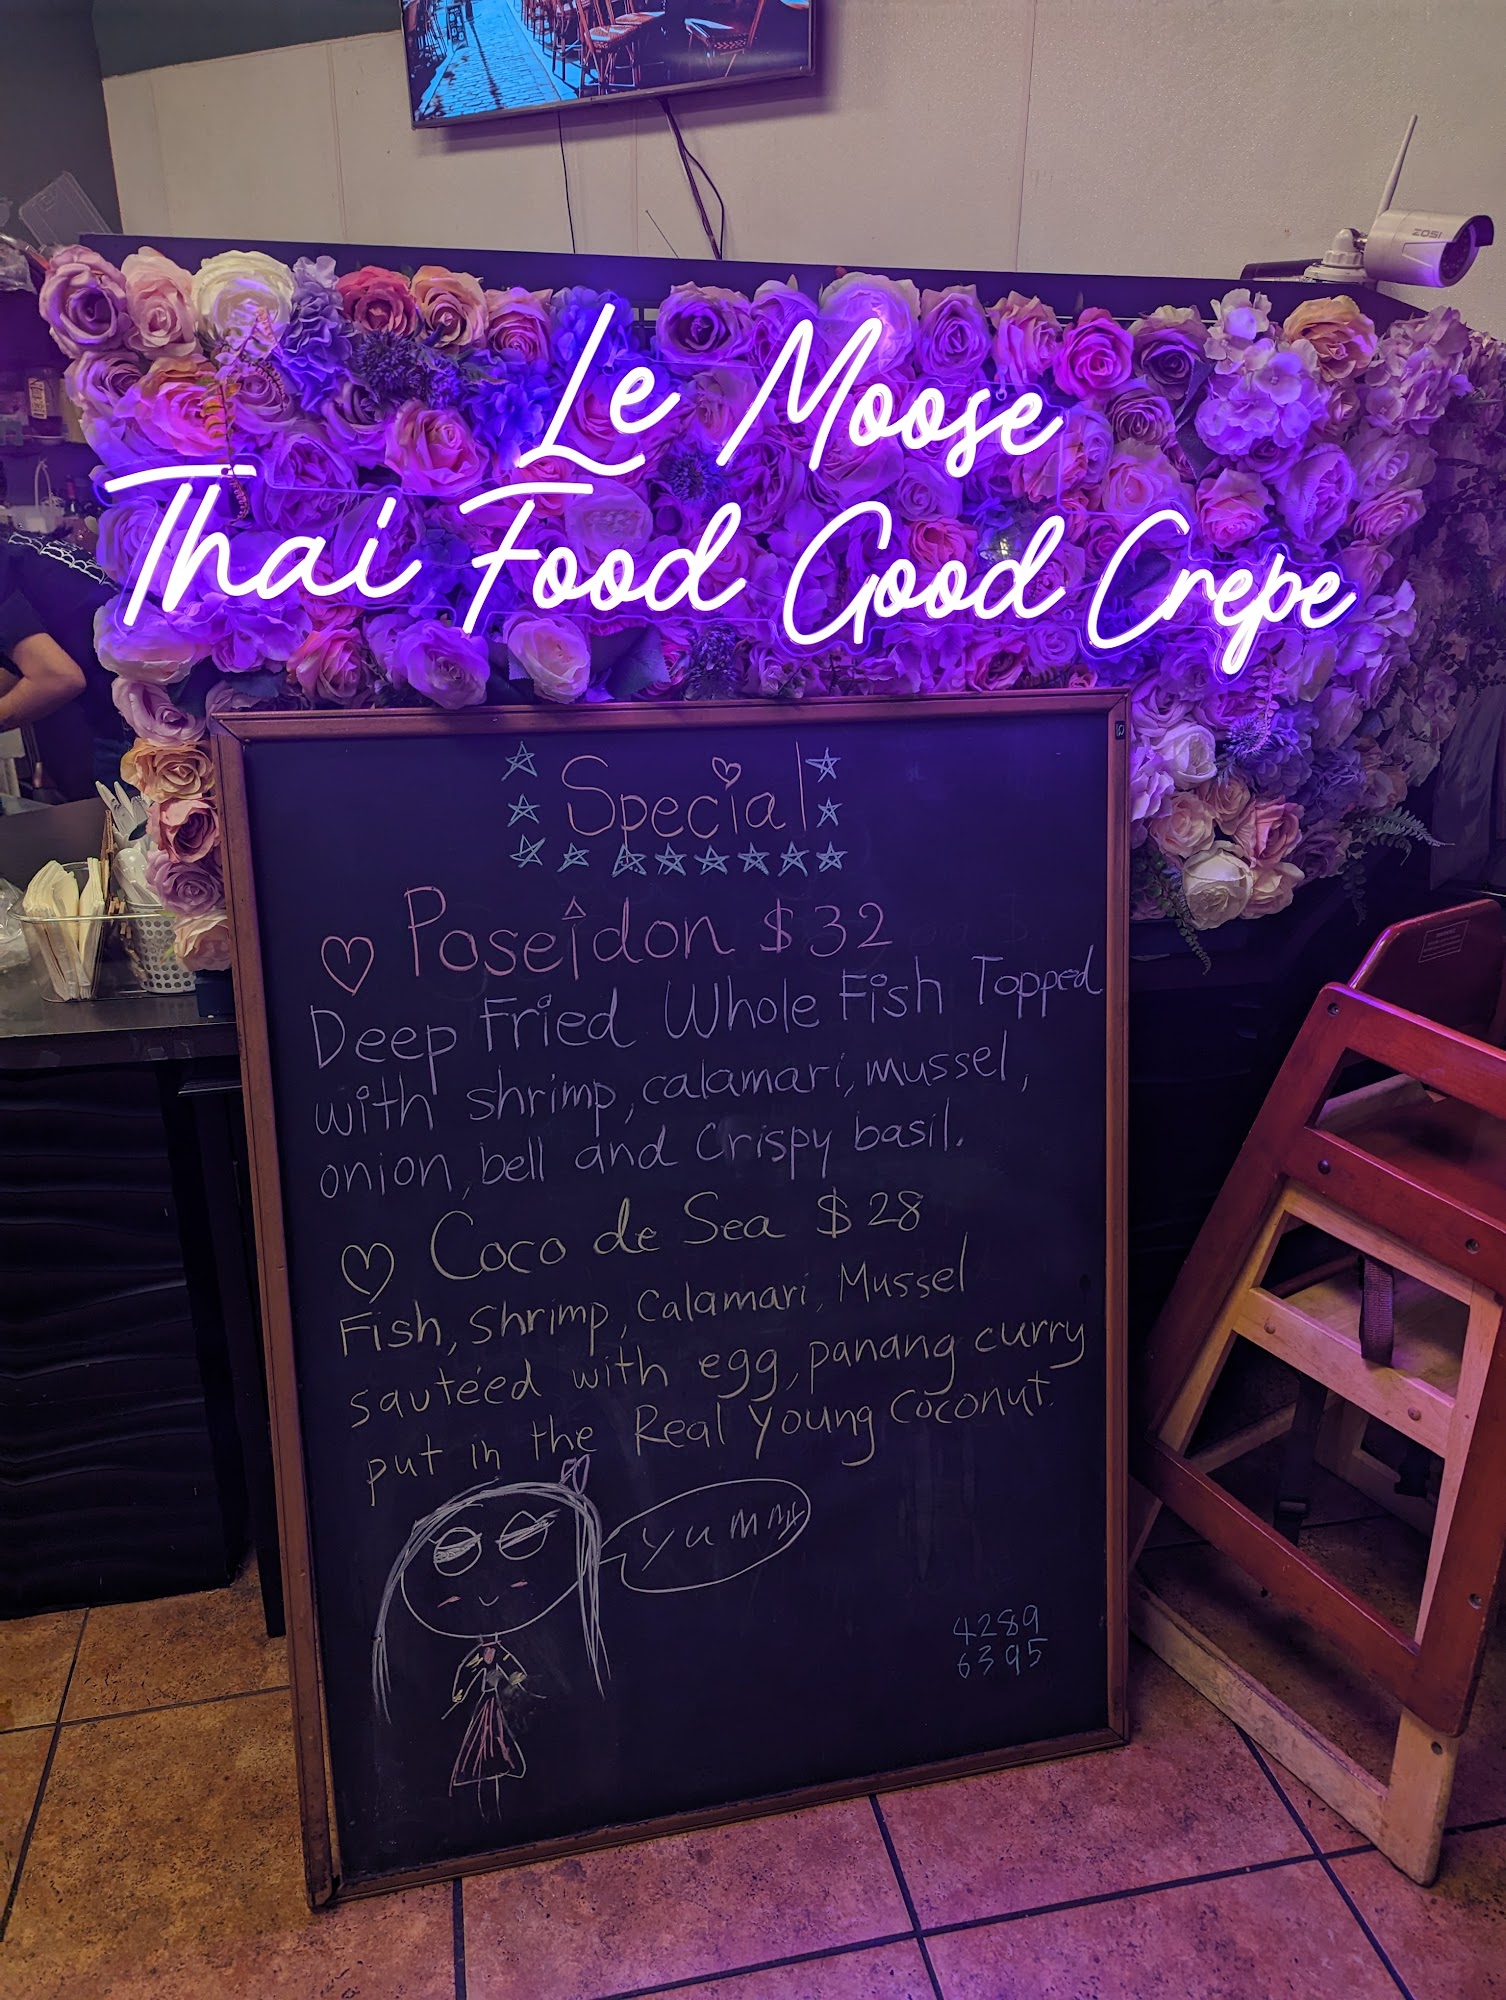 ZOSI
Le Moose
Thai Food Good Crepe
Special
Poseidon $32
Deep Fried Whole Fish Topped
with shrimp, calamari, mussel,
onion, bell and crispy basil.
Coco de Sea $28
Fish, Shrimp, Calamari, Mussel
sautéed with egg, panang curry
put in the Real Young Coconut.
Yummy
4289
6395